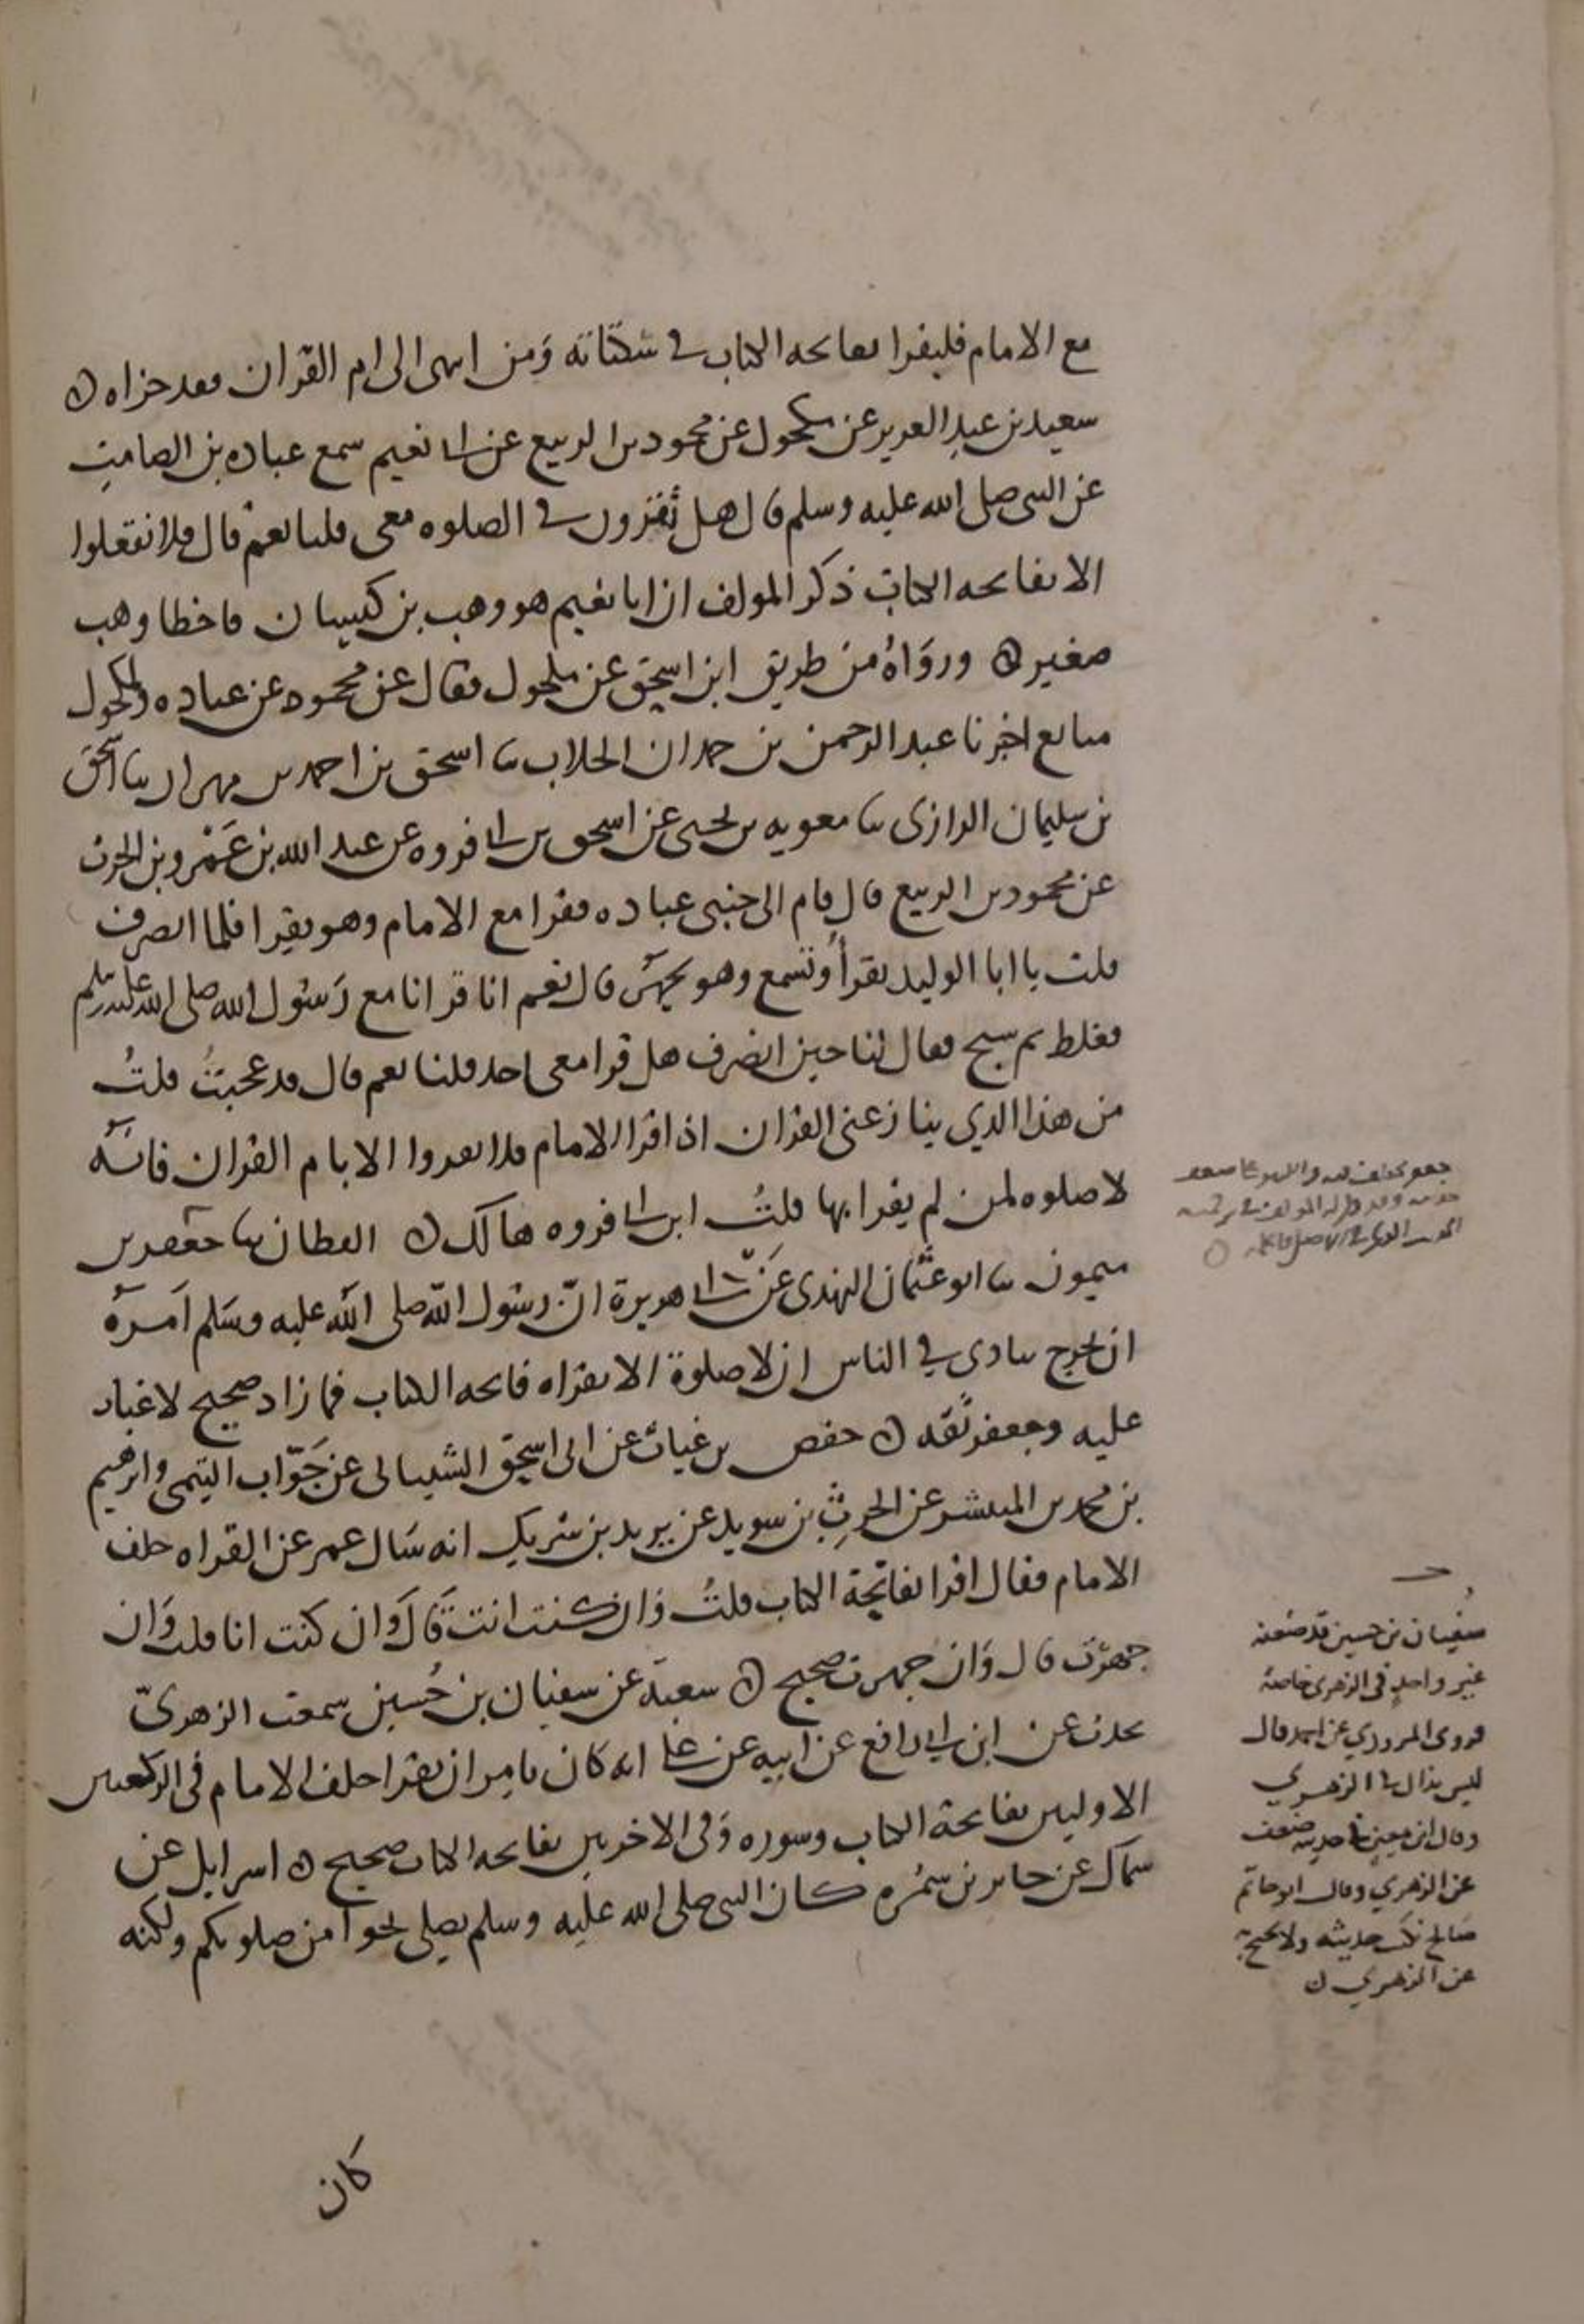 مع الامام فليقرا بفاتحه الكتاب في سكتاته ومن انتهى الى ام القران فقد جزاه ه
سعيد بن عبد العزيز عن مكحول عن محمود بن الربيع عن ابي نعيم سمع عباده بن الصامت
عن النبي صلى الله عليه وسلم قال هل تقرون في الصلوه معي قلنا نعم قال فلا تفعلوا
الا بفاتحه الكتاب ذكر المولف ان ابا نعيم هو وهب بن كيسان فاخطا وهب
صغير ه ورواه من طريق ابن اسحق عن مكحول فقال عن محمود عن عباده ولمكحول
متابع اخبرنا عبد الرحمن بن حمدان الجلاب ثنا اسحق بن احمد بن مهران ثنا اسحق
بن سليمان الرازي ثنا معويه بن يحيى عن اسحق بن ابي فروه عن عبد الله بن عمرو بن الحرث
عن محمود بن الربيع قال قام الى جنبي عباده فقرا مع الامام وهو يقرا فلما انصرف
قلت يا ابا الوليد تقرأ وتسمع وهو يجهر قال نعم انا قرانا مع رسول الله صلى الله عليه وسلم
فغلط ثم سبح فقال لنا حين انصرف هل قرا معي احد قلنا نعم قال قد عجبت قلت
من هذا الذي ينازعني القران اذا قرا الامام فلا تقروا الا بام القران فانه
لا صلوه لمن لم يقرا بها قلت ابن ابي فروه هالك ه القطان ثنا جعفر بن
ميمون ثنا ابو عثمان النهدي عن ابي هريرة ان رسول الله صلى الله عليه وسلم امره
ان يخرج ينادي في الناس ان لا صلوة الا بقراه فاتحه الكتاب فما زاد صحيح لا غبار
عليه وجعفر ثقه ه حفص بن غياث عن ابي اسحق الشيباني عن جواب التيمي وابرهيم
بن محمد بن المنتشر عن الحرث بن سويد عن يزيد بن شريك انه سال عمر عن القراه خلف
الامام فقال اقرا بفاتحة الكتاب قلت وان كنت انت قال وان كنت انا قلت وان
جهرت قال وان جهرت صحيح ه شعبة عن سفيان بن حسين سمعت الزهري
يحدث عن ابن ابي رافع عن ابيه عن علي انه كان يامر ان يقرا خلف الامام في الركعتين
الاوليين بفاتحة الكتاب وسوره وفي الاخريين بفاتحه الكتاب صحيح ه اسرايل عن
سماك عن جابر بن سمره كان النبي صلى الله عليه وسلم يصلي نحوا من صلوتكم ولكنه
كان
جعفر مختلف فيه
سفيان بن حسين قد ضعفه
غير واحد في الزهري خاصة
فروى المروذي عن احمد قال
ليس بذاك في الزهري
وقال ابن معين في حديثه ضعف
عن الزهري وقال ابو حاتم
صالح يكتب حديثه ولا يحتج به
عن الزهري ه